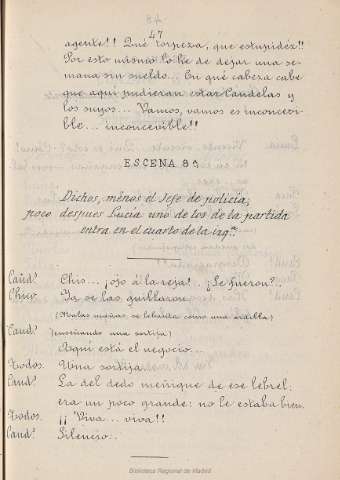 47
agente!! Qué torpeza, que estupidéz!!
Por esto mismo lo he de dejar una se-
mana sin sueldo... En qué cabeza cabe
que aqui pudieran estar Candelas y
los suyos... Vamos, vamos es inconcevi-
ble... inconcevible!!
ESCENA 8ª
Dichos, menos el Jefe de policía,
poco despues Lucia uno de los de la partida
entra en el cuarto de la izqª.
Cand.s Chis... ¡ojo á la reja!.. ¿Se fueron?..
Chivo. Ya se las guillaron.
(Malas mañas, se levanta como una ardilla)
Cand.s (enseñando una sortija)
Aqui está el negocio...
Todos. Una sortija.
Cand.s La del dedo meñique de ese lebrel;
era un poco grande: no le estaba bien.
Todos. ¡¡Viva... viva!!
Cand.s Silencio..
Biblioteca Regional de Madrid